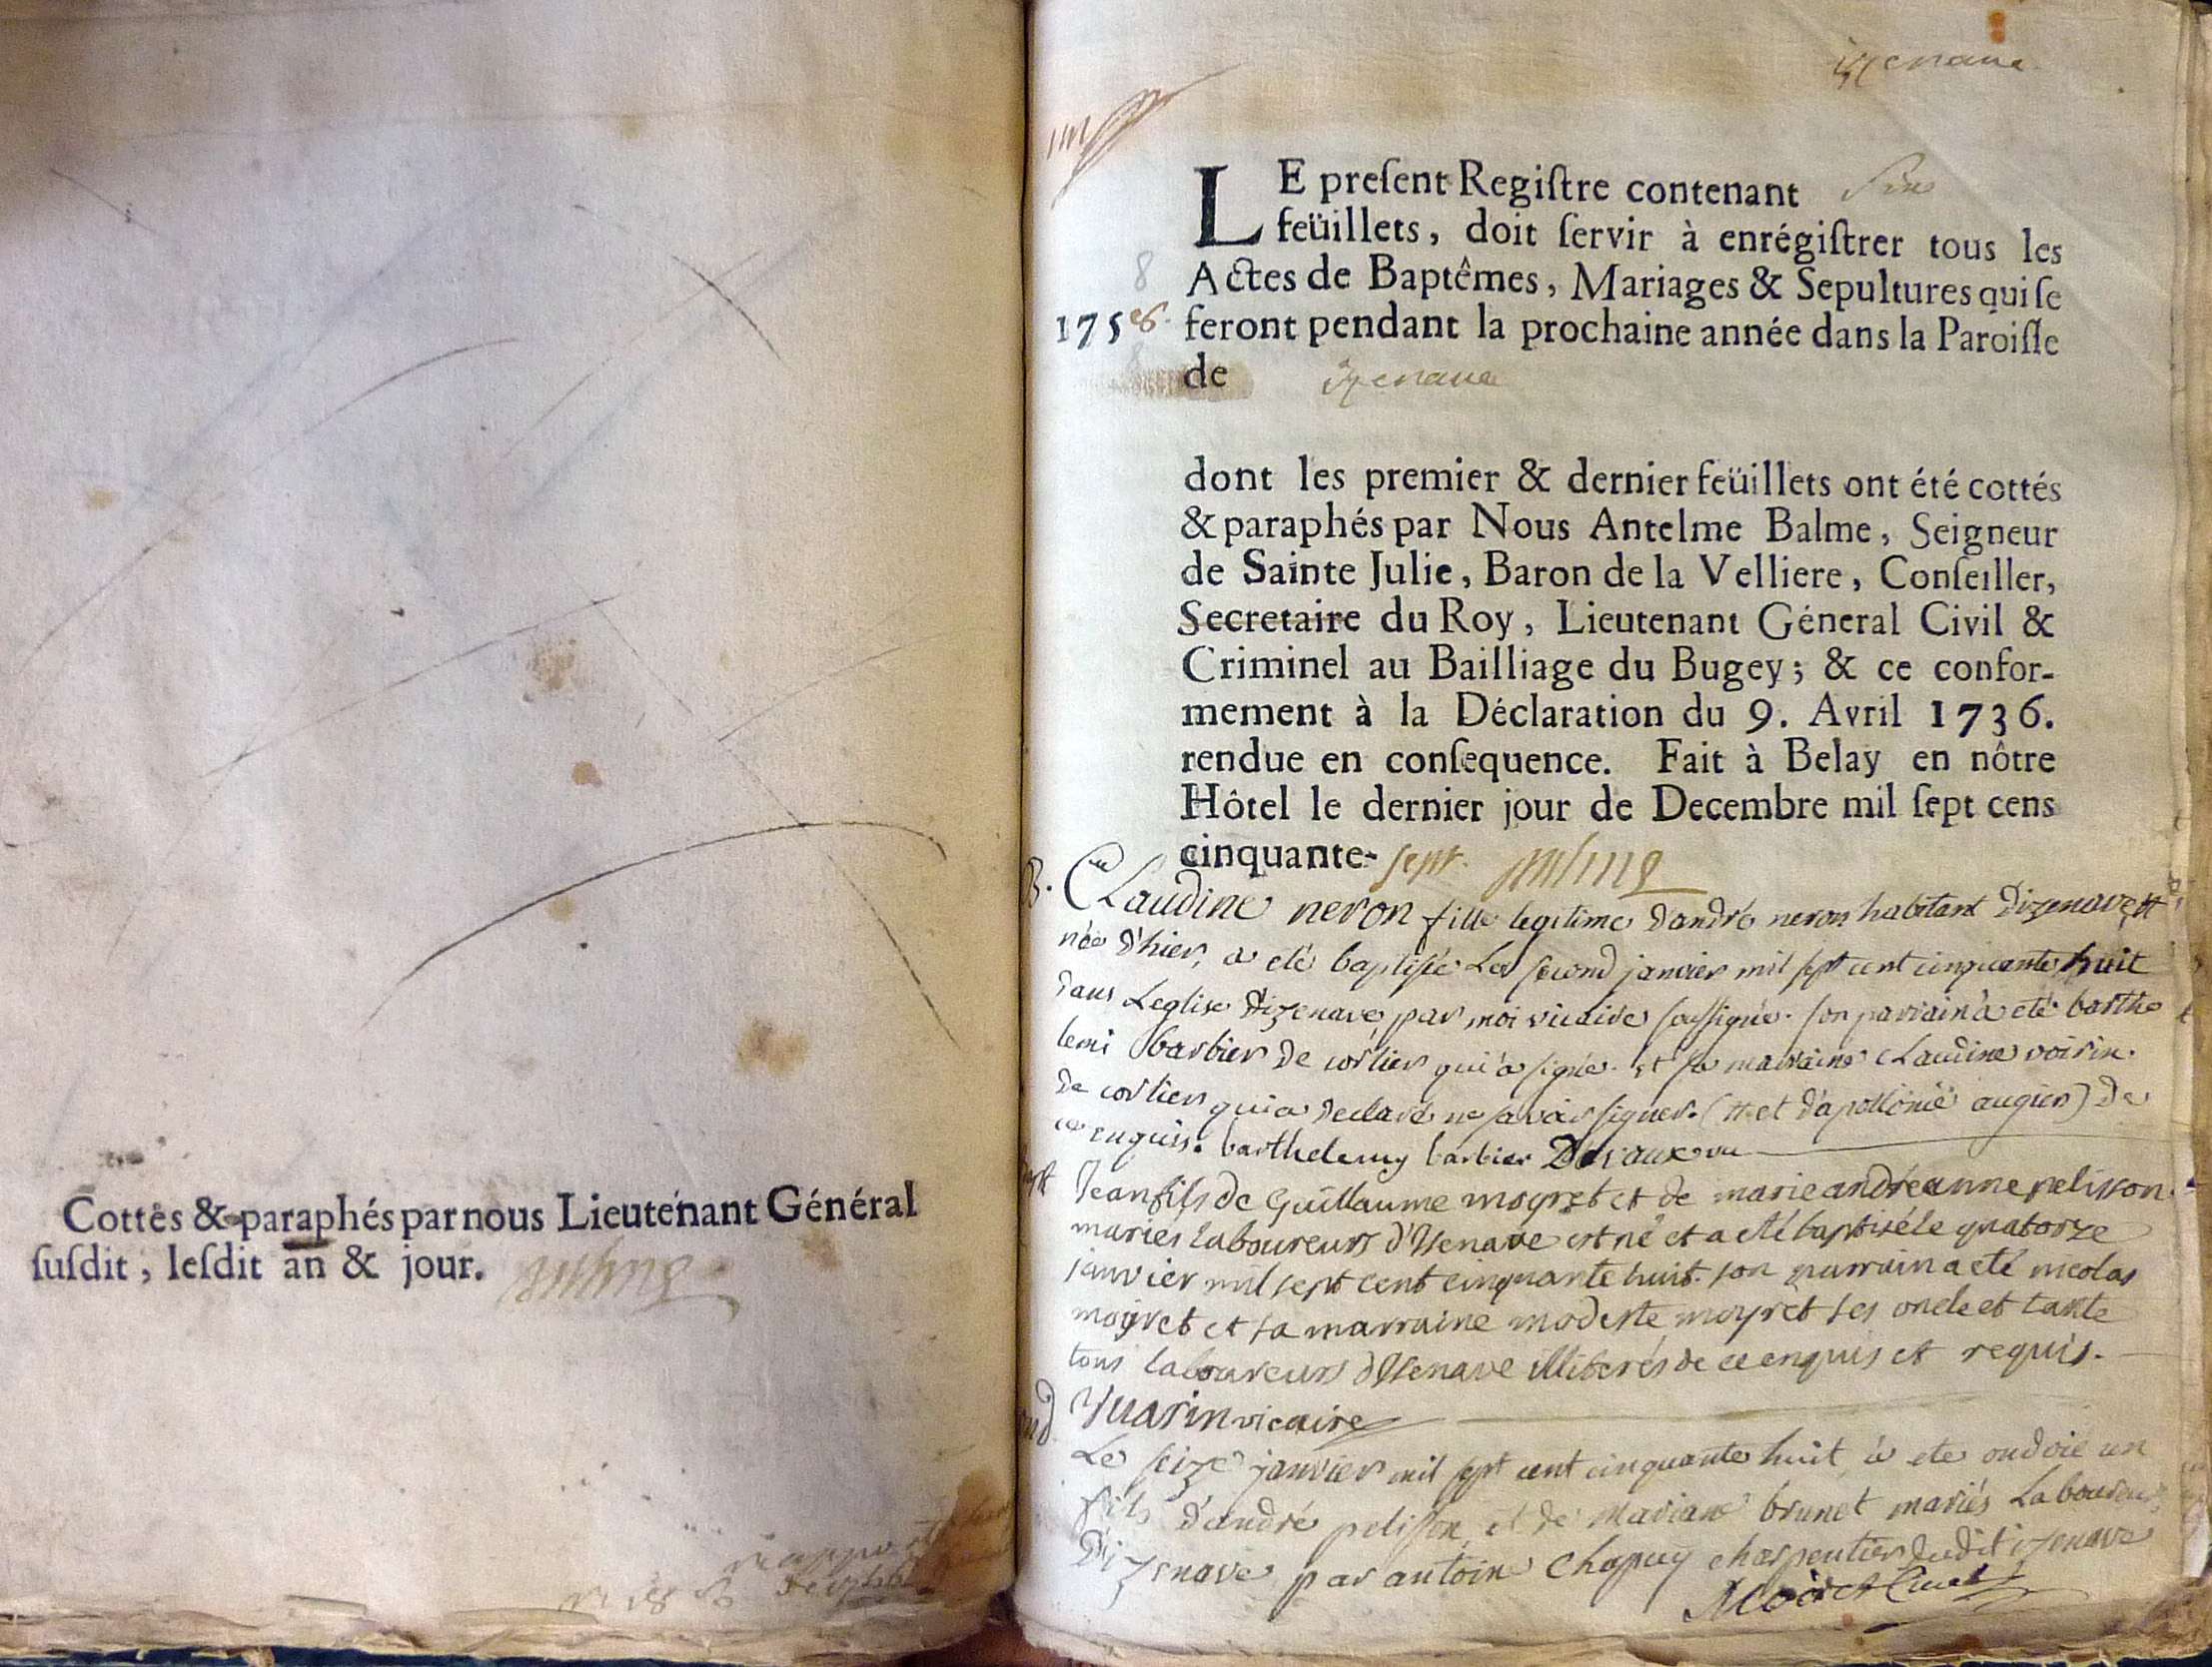 Cottés & paraphés par nous Lieutenant Général
ſuſdit, leſdit an & jour.
izenave
LE preſent Regiſtre contenant
feüillets, doit ſervir à enrégiſtrer tous les
8
Actes de Baptêmes, Mariages & Sepultures qui ſe
175
feront pendant la prochaine année dans la Paroiſſe
de izenave
dont les premier & dernier feüillets ont été cottés
& paraphés par Nous Antelme Balme, Seigneur
de Sainte Julie, Baron de la Velliere, Conſeiller,
Secretaire du Roy, Lieutenant Géneral Civil &
Criminel au Bailliage du Bugey; & ce confor-
mement à la Déclaration du 9. Avril 1736.
rendue en conſequence. Fait à Belay en nôtre
Hôtel le dernier jour de Decembre mil ſept cens
cinquante- sept.
B. Claudine neron fille legitime d'andré neron habitant dizenave, #
née d'hier, a eté baptisée Le second janvier mil sept cent cinquante huit
dans Leglise dizenave, par moi vicaire soussigné. son parrain a eté barthe
lemi barbier de corlier qui a signé. et sa marraine Claudine voirin.
de corlier qui a declaré ne savoir signer. (# et d'apollonie augier) de
ce enquis. barthelemy barbier Devaux vic
Jean fils de Guillaume moyret et de marie andréanne pelisson
mariés laboureurs d'Isenave est né et a eté baptisé le quatorze
janvier mil sept cent cinquante huit. son parrain a eté nicolas
moyret et sa marraine modeste moyret ses oncle et tante
tous laboureurs d'Isenave illiterés de ce enquis et requis.
Vuarin vicaire
ond
Le seize janvier mil sept cent cinquante huit, a eté ondoié un
fils d'andré pelisson, et de Mariane brunet mariés Laboureurs
Dizenave par antoine Chapuy charpentier dudit izenave